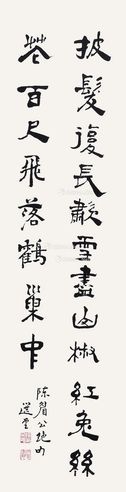 披髮復長歗雪盡山椒紅兔絲
花百尺飛落鶴巢中
陳眉公絕句
選堂